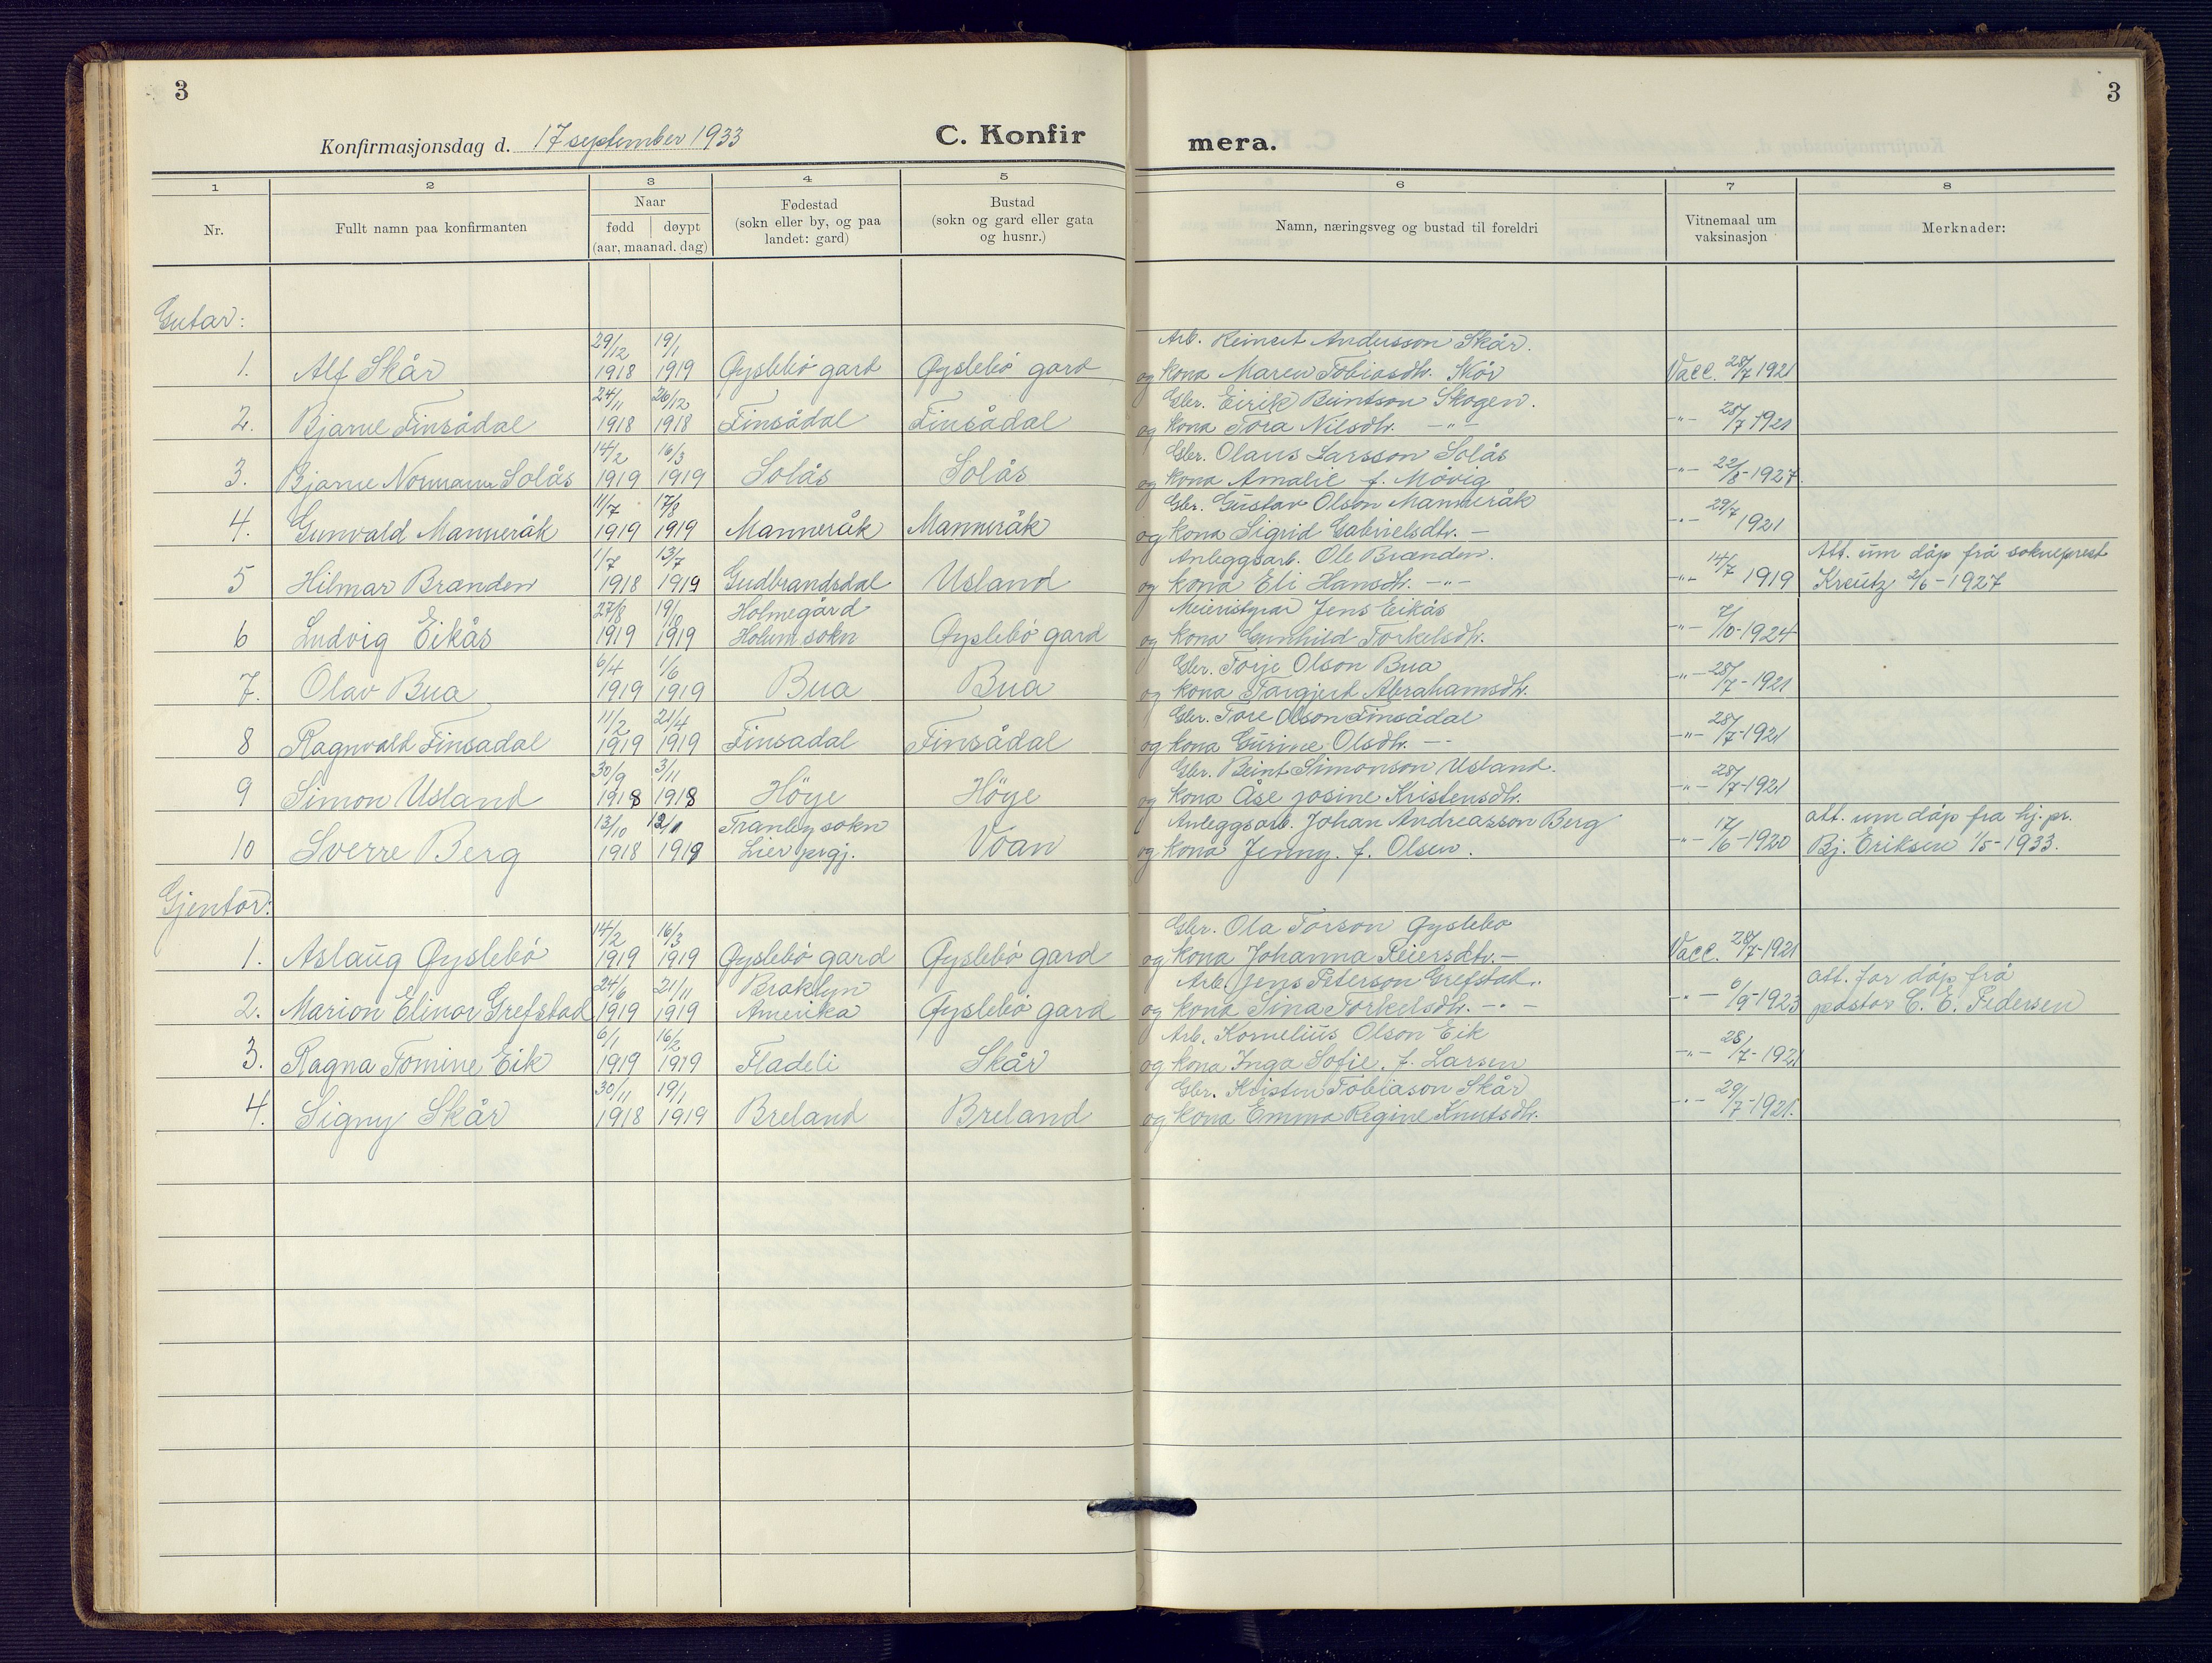 3
3
Konfirmasjonsdag d. 17 september 1933
C. Konfir mera.
1 2 3 4 5 6 7 8
Nr.
Fullt namn paa konfirmanten
Naar
fødd døypt
(aar, maanad. dag)
Fødestad
(sokn eller by, og paa
landet: gard)
Bustad
(sokn og gard eller gata
og husnr.)
Namn, næringsveg og bustad til foreldri
Vitnemaal um
vaksinasjon
Merknader:
Gutar:
29/12 19/1 Arb. Reinert Andersson Skår.
1. Alf Skår 1918 1919 Øyslebö gard Øyslebö gard og kona Maren Tobiasdtr. Skår Vacc. 28/7 1921
24/11 26/12 Gbr. Eirik Beintson Skogen.
2. Bjarne Finsådal 1918 1918 Finsådal Finsådal og kona Tora Nilsdtr. -"- -"- 28/7-1921
14/2 16/3 Gbr. Olaus Larsson Solås
3. Bjarne Normann Solås 1919 1919 Solås Solås og kona Amalie f. Mövig -"- 22/8-1927
11/7 17/8 Gbr. Gustav Olson Manneråk
4. Gunvald Manneråk 1919 1919 Manneråk Manneråk og kona Sigrid Gabrielsdtr. - -"- 29/7 1921
1/7 13/7 Anleggsarb. Ole Brænden. Att. um dåp frå sokneprest
5 Hilmar Brænden 1918 1919 Gudbrandsdal Usland og kona Eli Hansdtr. -"- -"- 14/7 1919 Kreutz 2/6-1927
27/8 19/10 Holmegård Meieristyrar Jens Eikås
6 Ludvig Eikås 1919 1919 Holum sokn Øyslebö gard og kona Gunhild Torkelsdtr. -"- 7/10-1924
6/4 1/6 Gbr. Torje Olson Bua
7. Olav Bua 1919 1919 Bua Bua og kona Targjerd Abrahamsdtr. -"- 28/7-1921
11/2 21/4 Gbr. Tore Olson Finsådal
8 Ragnvald Finsadal 1919 1919 Finsadal Finsådal og kona Gurine Olsdtr. -- -"- 28/7-1921
30/9 3/11 Gbr. Beint Simonson Usland.
9 Simon Usland 1918 1918 Höye Höye og kona Åse Josine Kristensdtr. -"- 28/7-1921
13/10 Tranby sokn Anleggsarb. Johan Andreasson Berg att. um dåp fra hj. pr.
10 Sverre Berg 1918 Lier prgj. Voan og kona Jenny. f. Olsen. -"- 17/6-1920 Bj. Eriksen 1/5-1933.
Gjentor:
14/2 16/3 Gbr. Ola Torson Øyslebö
1. Aslaug Øyslebö 1919 1919 Øyslebö gard Øyslebö gard og kona Johanna Reiersdtr. - Vacc. 28/7-1921
24/6 21/11 Broklyn Arb. Jens Peterson Grefstad. att. for dåp frå
2. Marion Elinor Grefstad 1919 1919 Amerika Øyslebö gard og kona Sina Torkelsdtr. -"- -"- 6/9-1923 pastor C. E. Pedersen
6/1 16/2 Arb. Kornelius Olson Eik
3. Ragna Tomine Eik 1919 1919 Fladeli Skår og kona Inga Sofie. f. Larsen -"- 28/7-1921
30/11 19/1 Gbr. Kristen Tobiason Skår
4. Signy Skår 1918 1919 Breland Breland og kona Emma Regine Knutsdtr. -"- 29/7-1921.